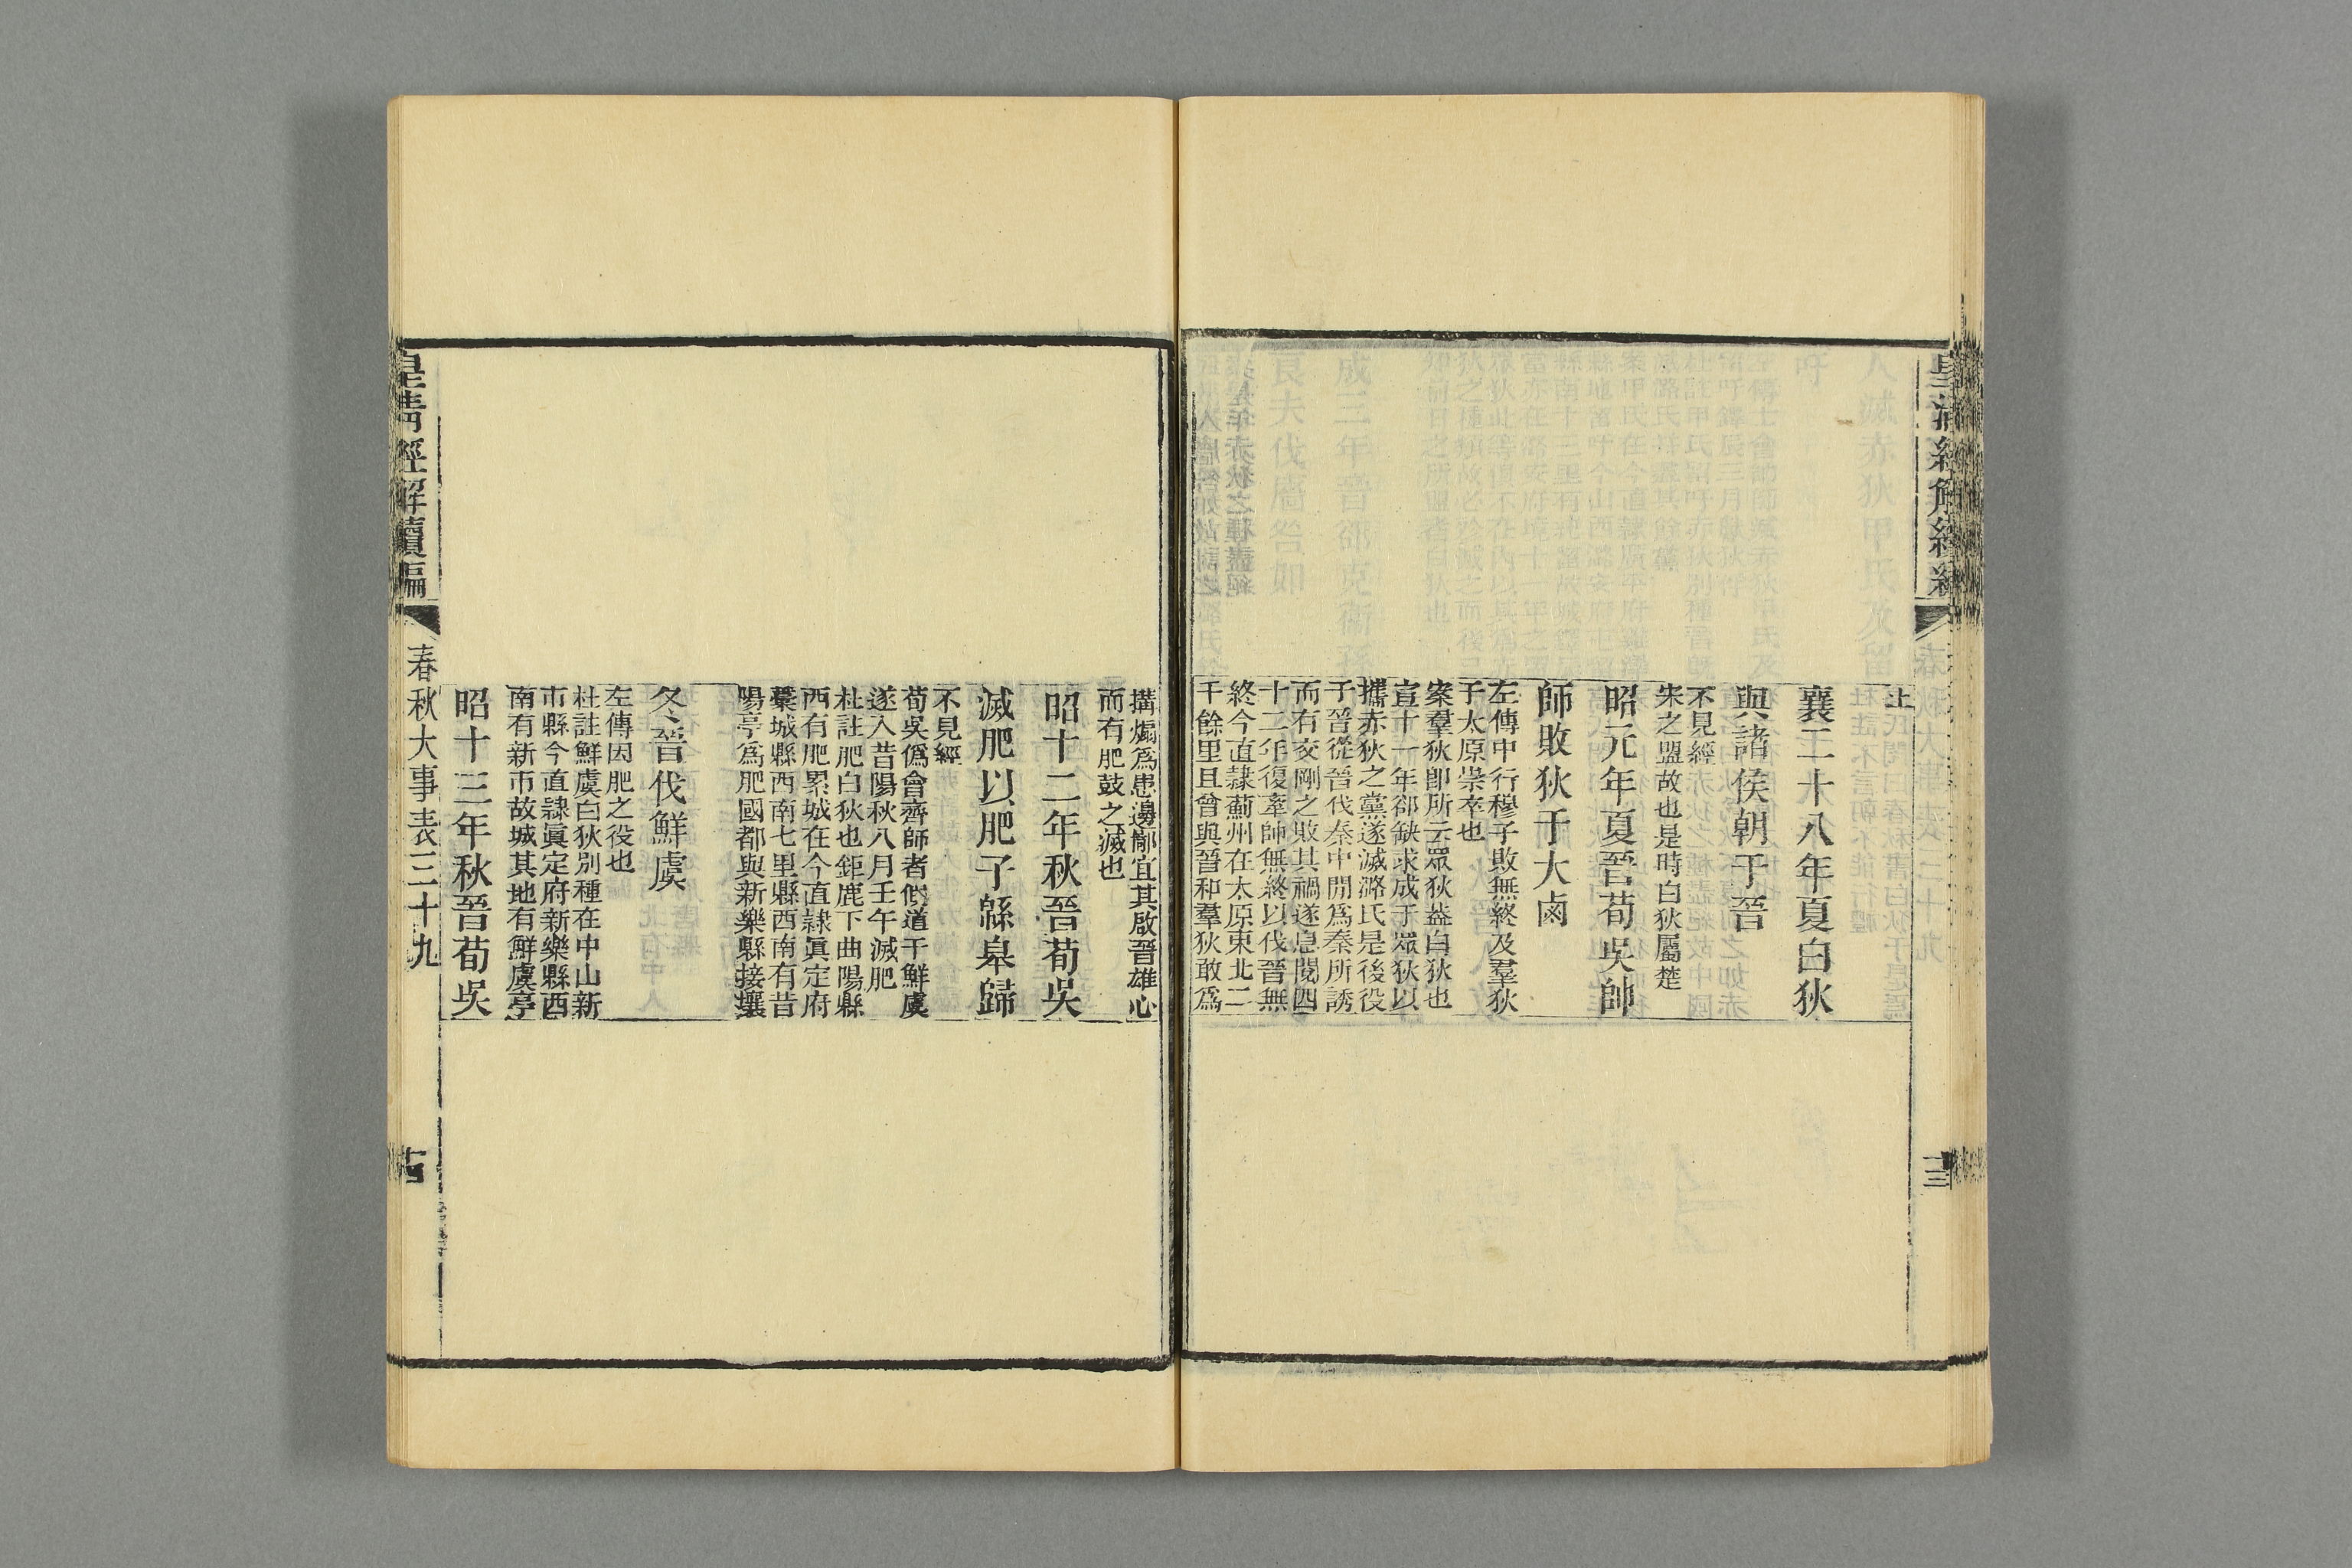 上
襄二十八年夏白狄
與諸侯朝于晉
不見經
宋之盟故也是時白狄屬楚
昭元年夏晉荀吳帥
師敗狄于大鹵
左傳中行穆子敗無終及羣狄
于太原崇卒也
案羣狄卽所云眾狄益白狄也
宣十一年郤缺求成于眾狄以
攜赤狄之黨遂滅潞氏是後役
于晉從晉伐秦中閒爲秦所誘
而有交剛之敗其禍遂息閱四
十二年復牽師無終以伐晉無
終今直隸薊州在太原東北二
千餘里且曾與晉和羣狄敢爲
搆煽爲患邊鄙宜其啟晉雄心
而有肥鼓之滅也
昭十二年秋晉荀吳
滅肥以肥子緜皋歸
不見經
荀吳僞會齊師者假道于鮮虞
遂入昔陽秋八月壬午滅肥
杜註肥白狄也鉅鹿下曲陽縣
西有肥累城在今直隸眞定府
藁城縣西南七里縣西南有昔
陽亭爲肥國都與新樂縣接壤
冬晉伐鮮虞
左傳因肥之役也
杜註鮮虞白狄別種在中山新
市縣今直隸眞定府新樂縣西
南有新市故城其地有鮮虞亭
昭十三年秋晉荀吳
皇清經解續編
春秋大事表三十九
十四